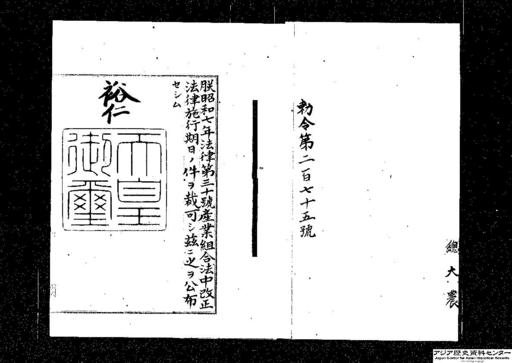 總 大 農
勅令第二百七十五號
朕昭和七年法律第三十號産業組合法中改正
法律施行期日ノ件ヲ裁可シ茲ニ之ヲ公布
セシム
裕仁
天皇
御璽
アジア歴史資料センター
Japan Center for Asian Historical Records